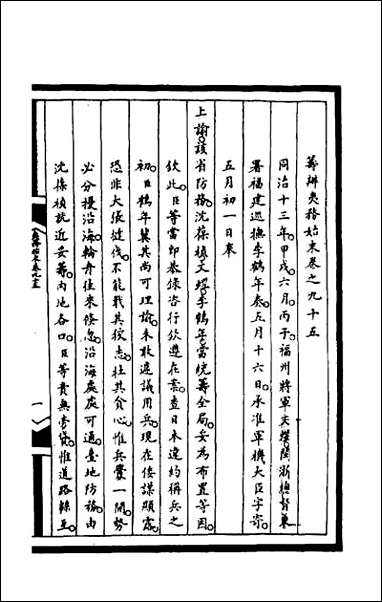 籌辦夷務始末卷之九十五
同治十三年甲戌六月丙子福州將軍文煜閩浙總督兼
署福建巡撫李鶴年奏五月十六日承准軍機大臣字寄
五月初一日奉
上諭該省防務沈葆楨文煜李鶴年當統籌全局妥為布置等因
欽此臣等當即恭錄咨行欽遵在案查日本違約稱兵之
初臣鶴年冀其尚可理諭未敢遽議用兵現在倭謀顯露
恐非大張撻伐不能戢其狡志杜其貪心惟兵釁一開勢
必分擾沿海輪舟往來倐忽沿海處處可通臺地防務由
沈葆楨就近妥籌內地各口臣等責無旁貸惟道路綿亙